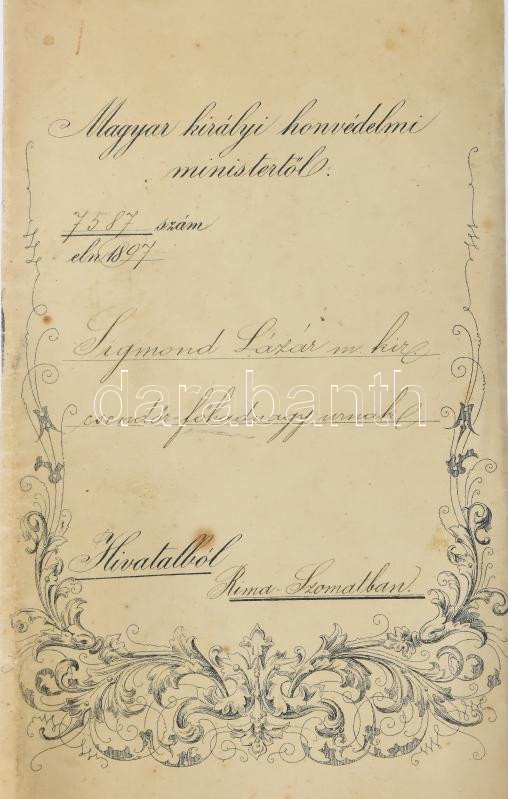 Magyar királyi honvédelmi
ministertől.
7587 szám
eln 1897
Sigmond Lázár m. kir.
csendőr főhadnagy urnak
darabanth
Hivatalból
Rima-Szombatban